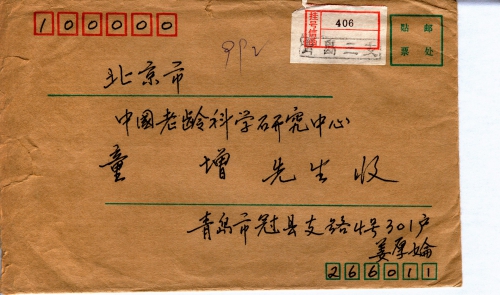 100000
挂号信函
406
贴 邮
票 处
992
北京市
中國老龄科学研究中心
童 增 先生 收
青岛市冠县支路4号301户
姜厚
266011